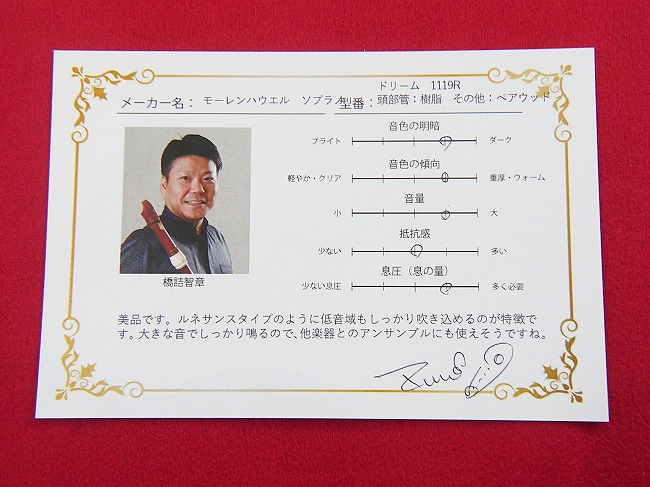 ドリーム 1119R
メーカー名： モーレンハウエル ソプラノ 型番： 頭部管：樹脂 その他：ペアウッド
音色の明暗
ブライト ダーク
音色の傾向
軽やか・クリア 重厚・ウォーム
音量
小 大
抵抗感
少ない 多い
息圧（息の量）
少ない息圧 多く必要
橋詰智章
美品です。ルネサンスタイプのように低音域もしっかり吹き込めるのが特徴で
す。大きな音でしっかり鳴るので、他楽器とのアンサンブルにも使えそうですね。